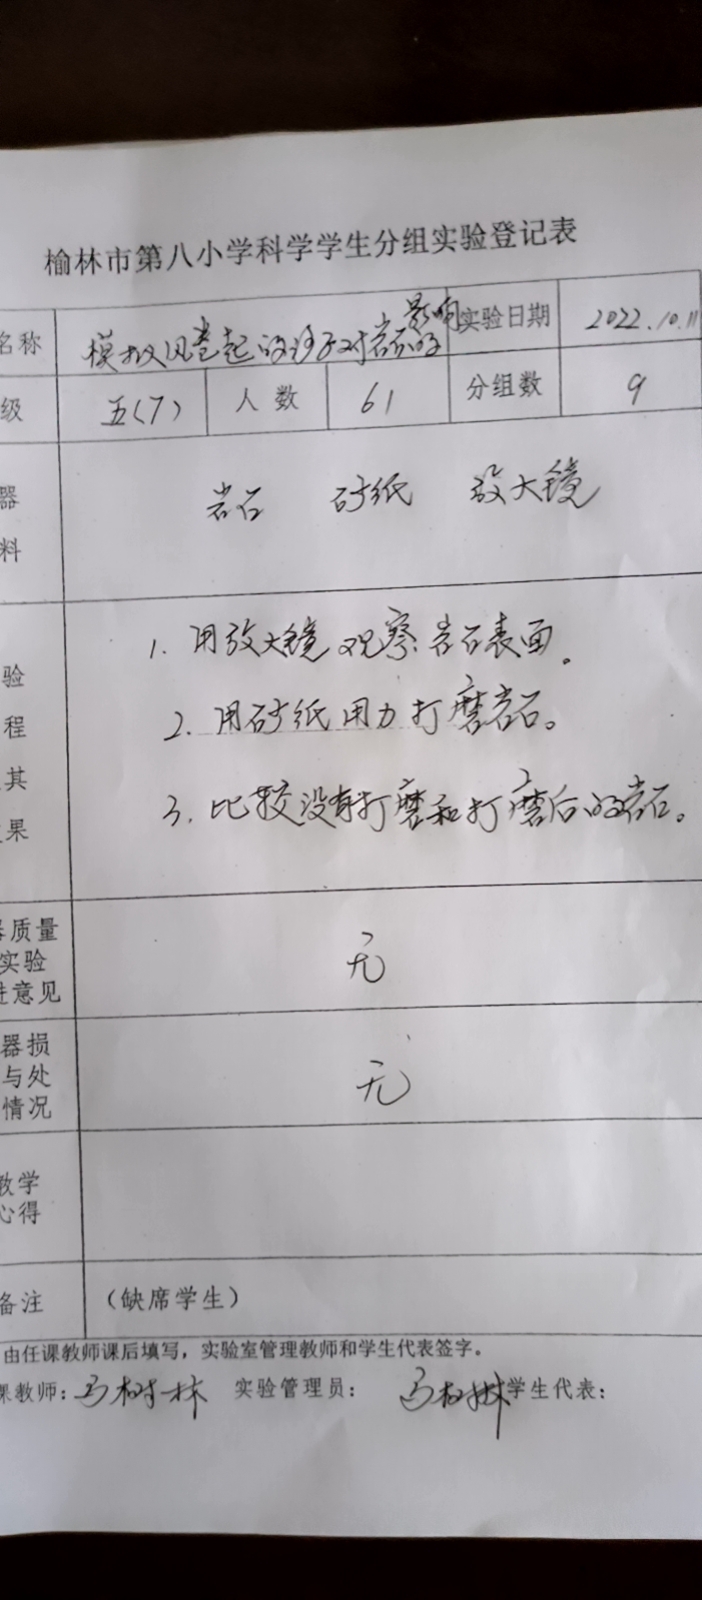 榆林市第八小学科学学生分组实验登记表
名称 模拟风卷起的沙子对岩石的影响 实验日期 2022.10.11
级 五(7) 人数 61 分组数 9
器
料
岩石 砂纸 放大镜
验
程
其
果
1. 用放大镜观察岩石表面。
2. 用砂纸用力打磨岩石。
3. 比较没有打磨和打磨后的岩石。
质量
实验
进意见
无
器损
与处
情况
无
教学
心得
备注 (缺席学生)
由任课教师课后填写，实验室管理教师和学生代表签字。
课教师: 马树林 实验管理员: 马树林 学生代表: